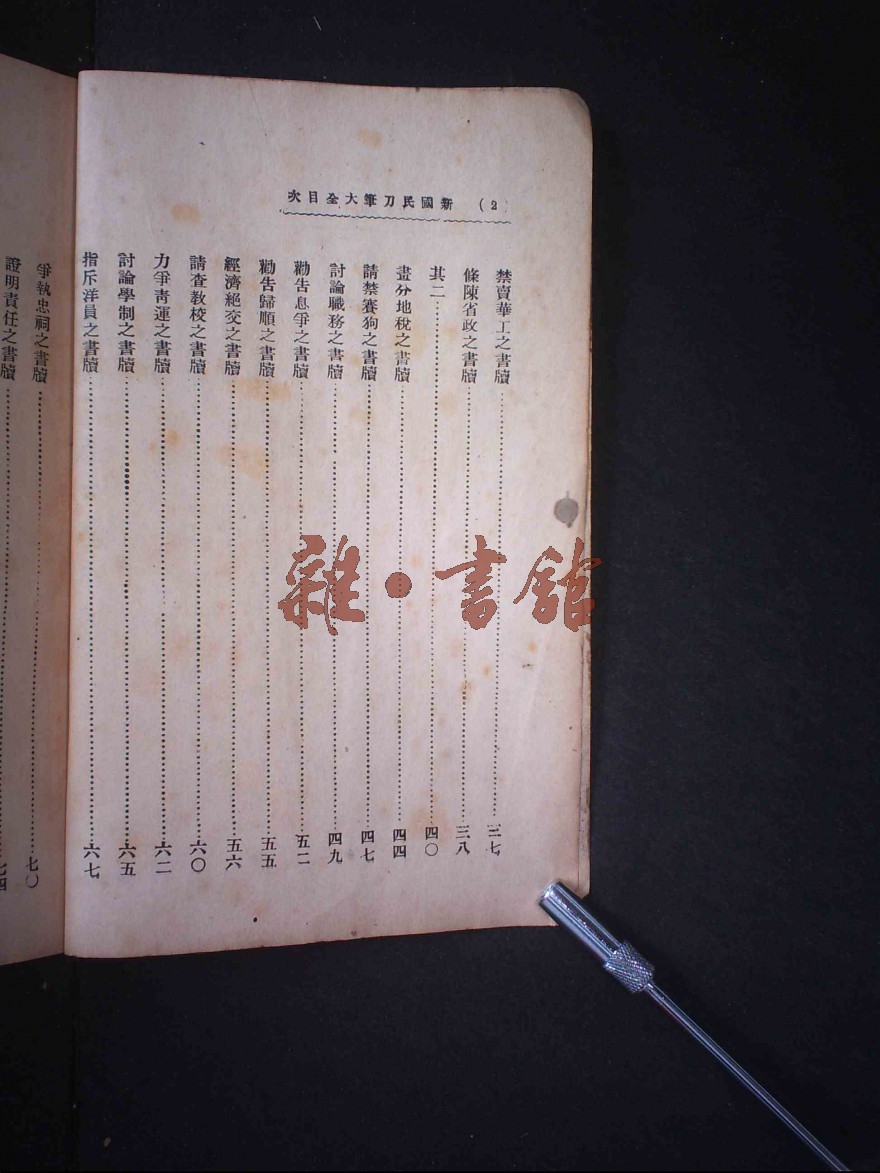 (2) 新國民刀筆大全目次
禁賣華工之書牘……三七
條陳省政之書牘……三八
其二……四〇
盡分地稅之書牘……四四
請禁賽狗之書牘……四七
討論職務之書牘……四九
勸告息爭之書牘……五二
勸告歸順之書牘……五五
經濟絕交之書牘……五六
請查教校之書牘……六〇
力爭靑運之書牘……六二
討論學制之書牘……六五
指斥洋員之書牘……六七
爭執忠祠之書牘……七〇
證明責任之書牘……七四
雜·書館